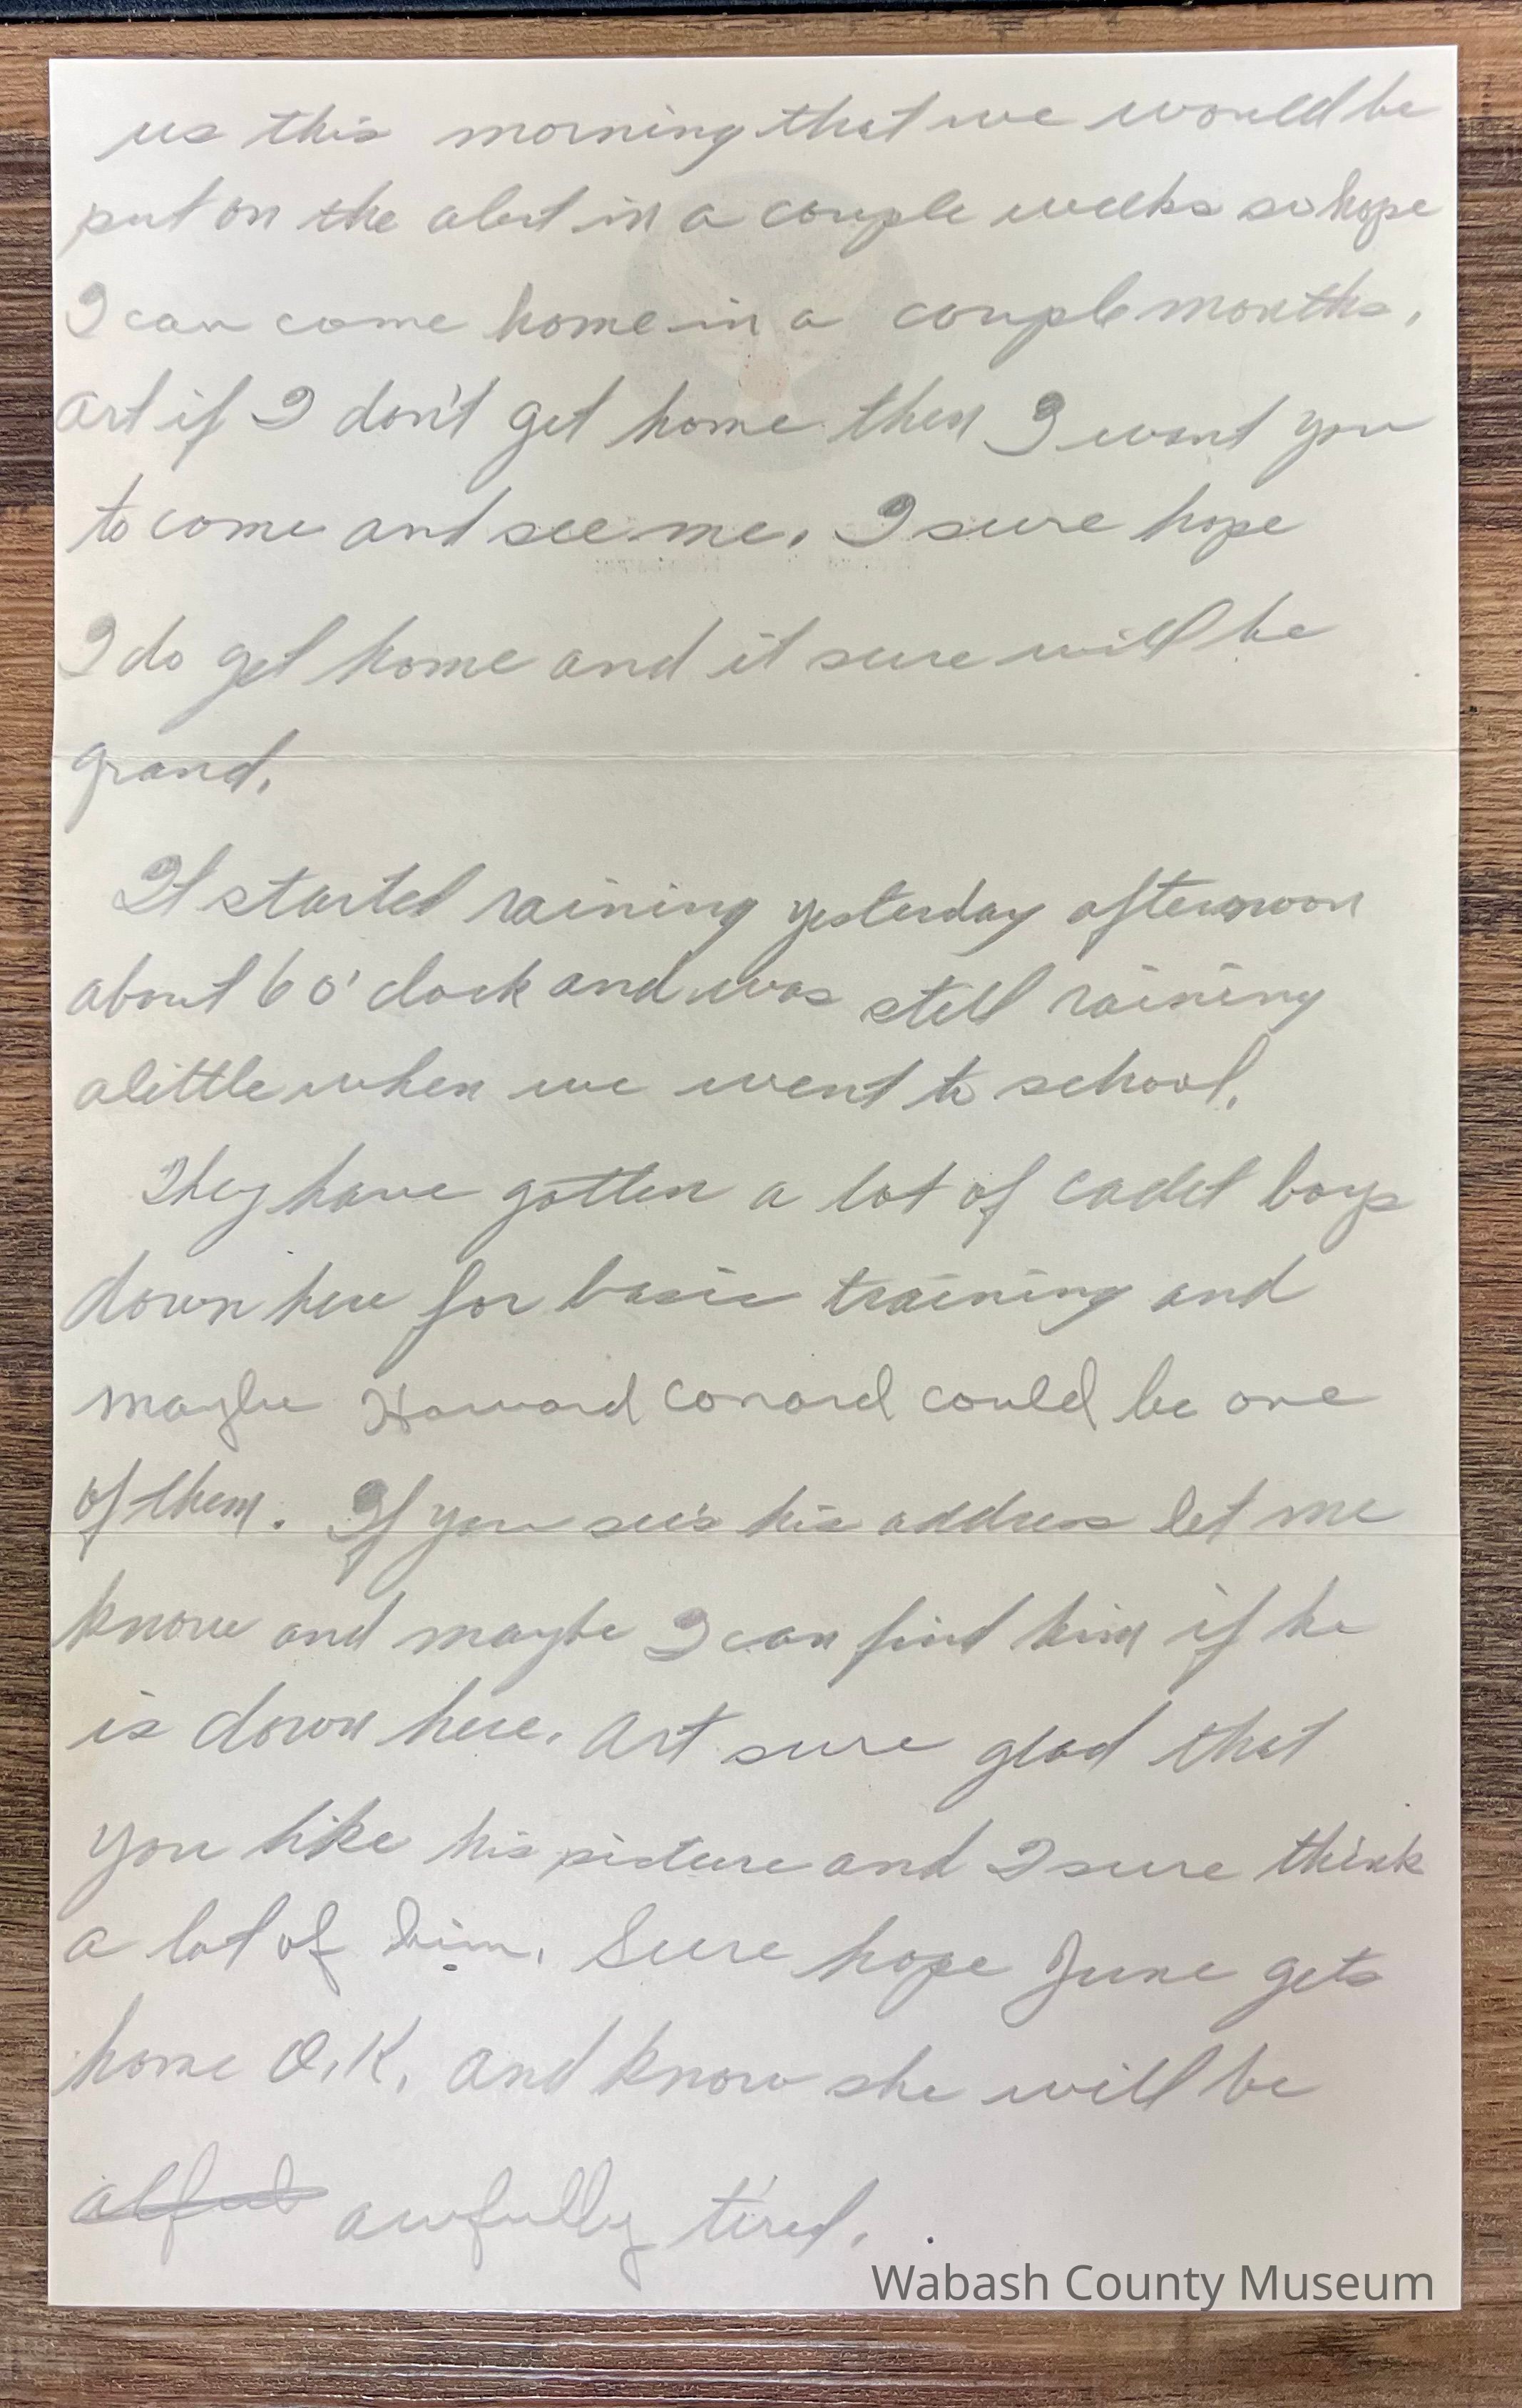 us this morning that we would be
put on the alert in a couple weeks so hope
I can come home in a couple months.
Art if I don't get home then I want you
to come and see me. I sure hope
I do get home and it sure will be
grand.
It started raining yesterday afternoon
about 6 o'clock and was still raining
alittle when we went to school.
They have gotten a lot of cadet boys
down here for basic training and
maybe Howard Conard could be one
of them. If you see's his address let me
know and maybe I can find him if he
is down here. Art sure glad that
you like his picture and I sure think
a lot of him. Sure hope June gets
home O.K. and know she will be
awfully tired.
Wabash County Museum